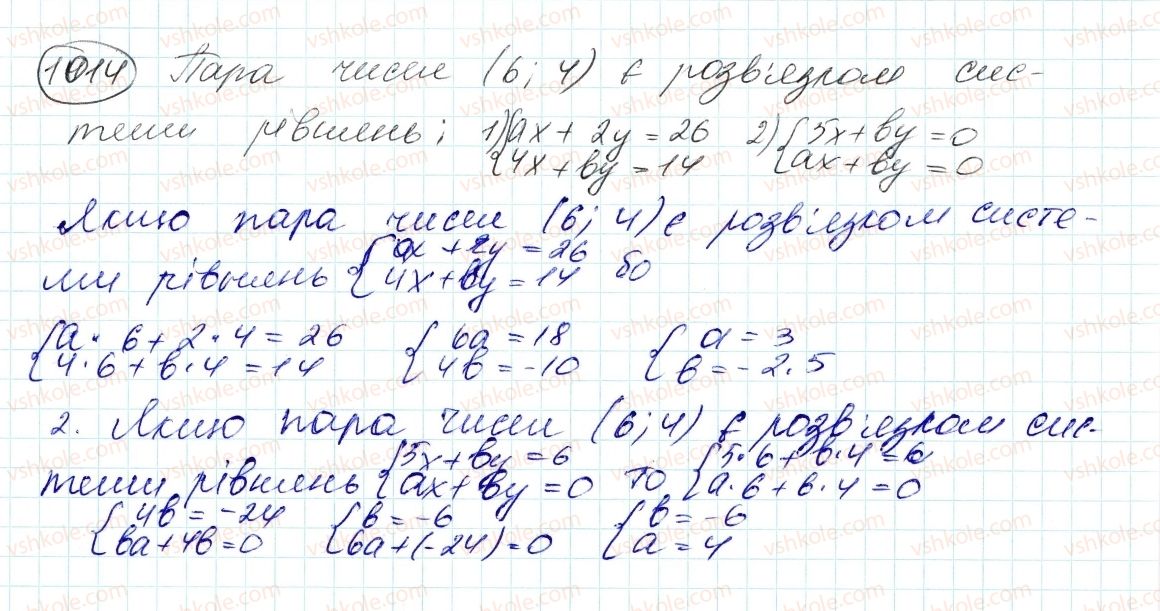 1014 Пара чисел (6; 4) є розв'язком сис-
теми рівнянь; 1) {ax + 2y = 26 2) {5x + by = 0
{4x + by = 14 {ax + by = 0
Якщо пара чисел (6; 4) є розв'язком систе-
ми рівнянь {ax + 2y = 26 бо
{4x + by = 14
{a · 6 + 2 · 4 = 26 {6a = 18 {a = 3
{4 · 6 + b · 4 = 14 {4b = -10 {b = -2.5
2. Якщо пара чисел (6; 4) є розв'язком сис-
теми рівнянь {5x + by = 6 то {5 · 6 + b · 4 = 6
{ax + by = 0 {a · 6 + b · 4 = 0
{4b = -24 {b = -6 {b = -6
{6a + 4b = 0 {6a + (-24) = 0 {a = 4
vshkole.com